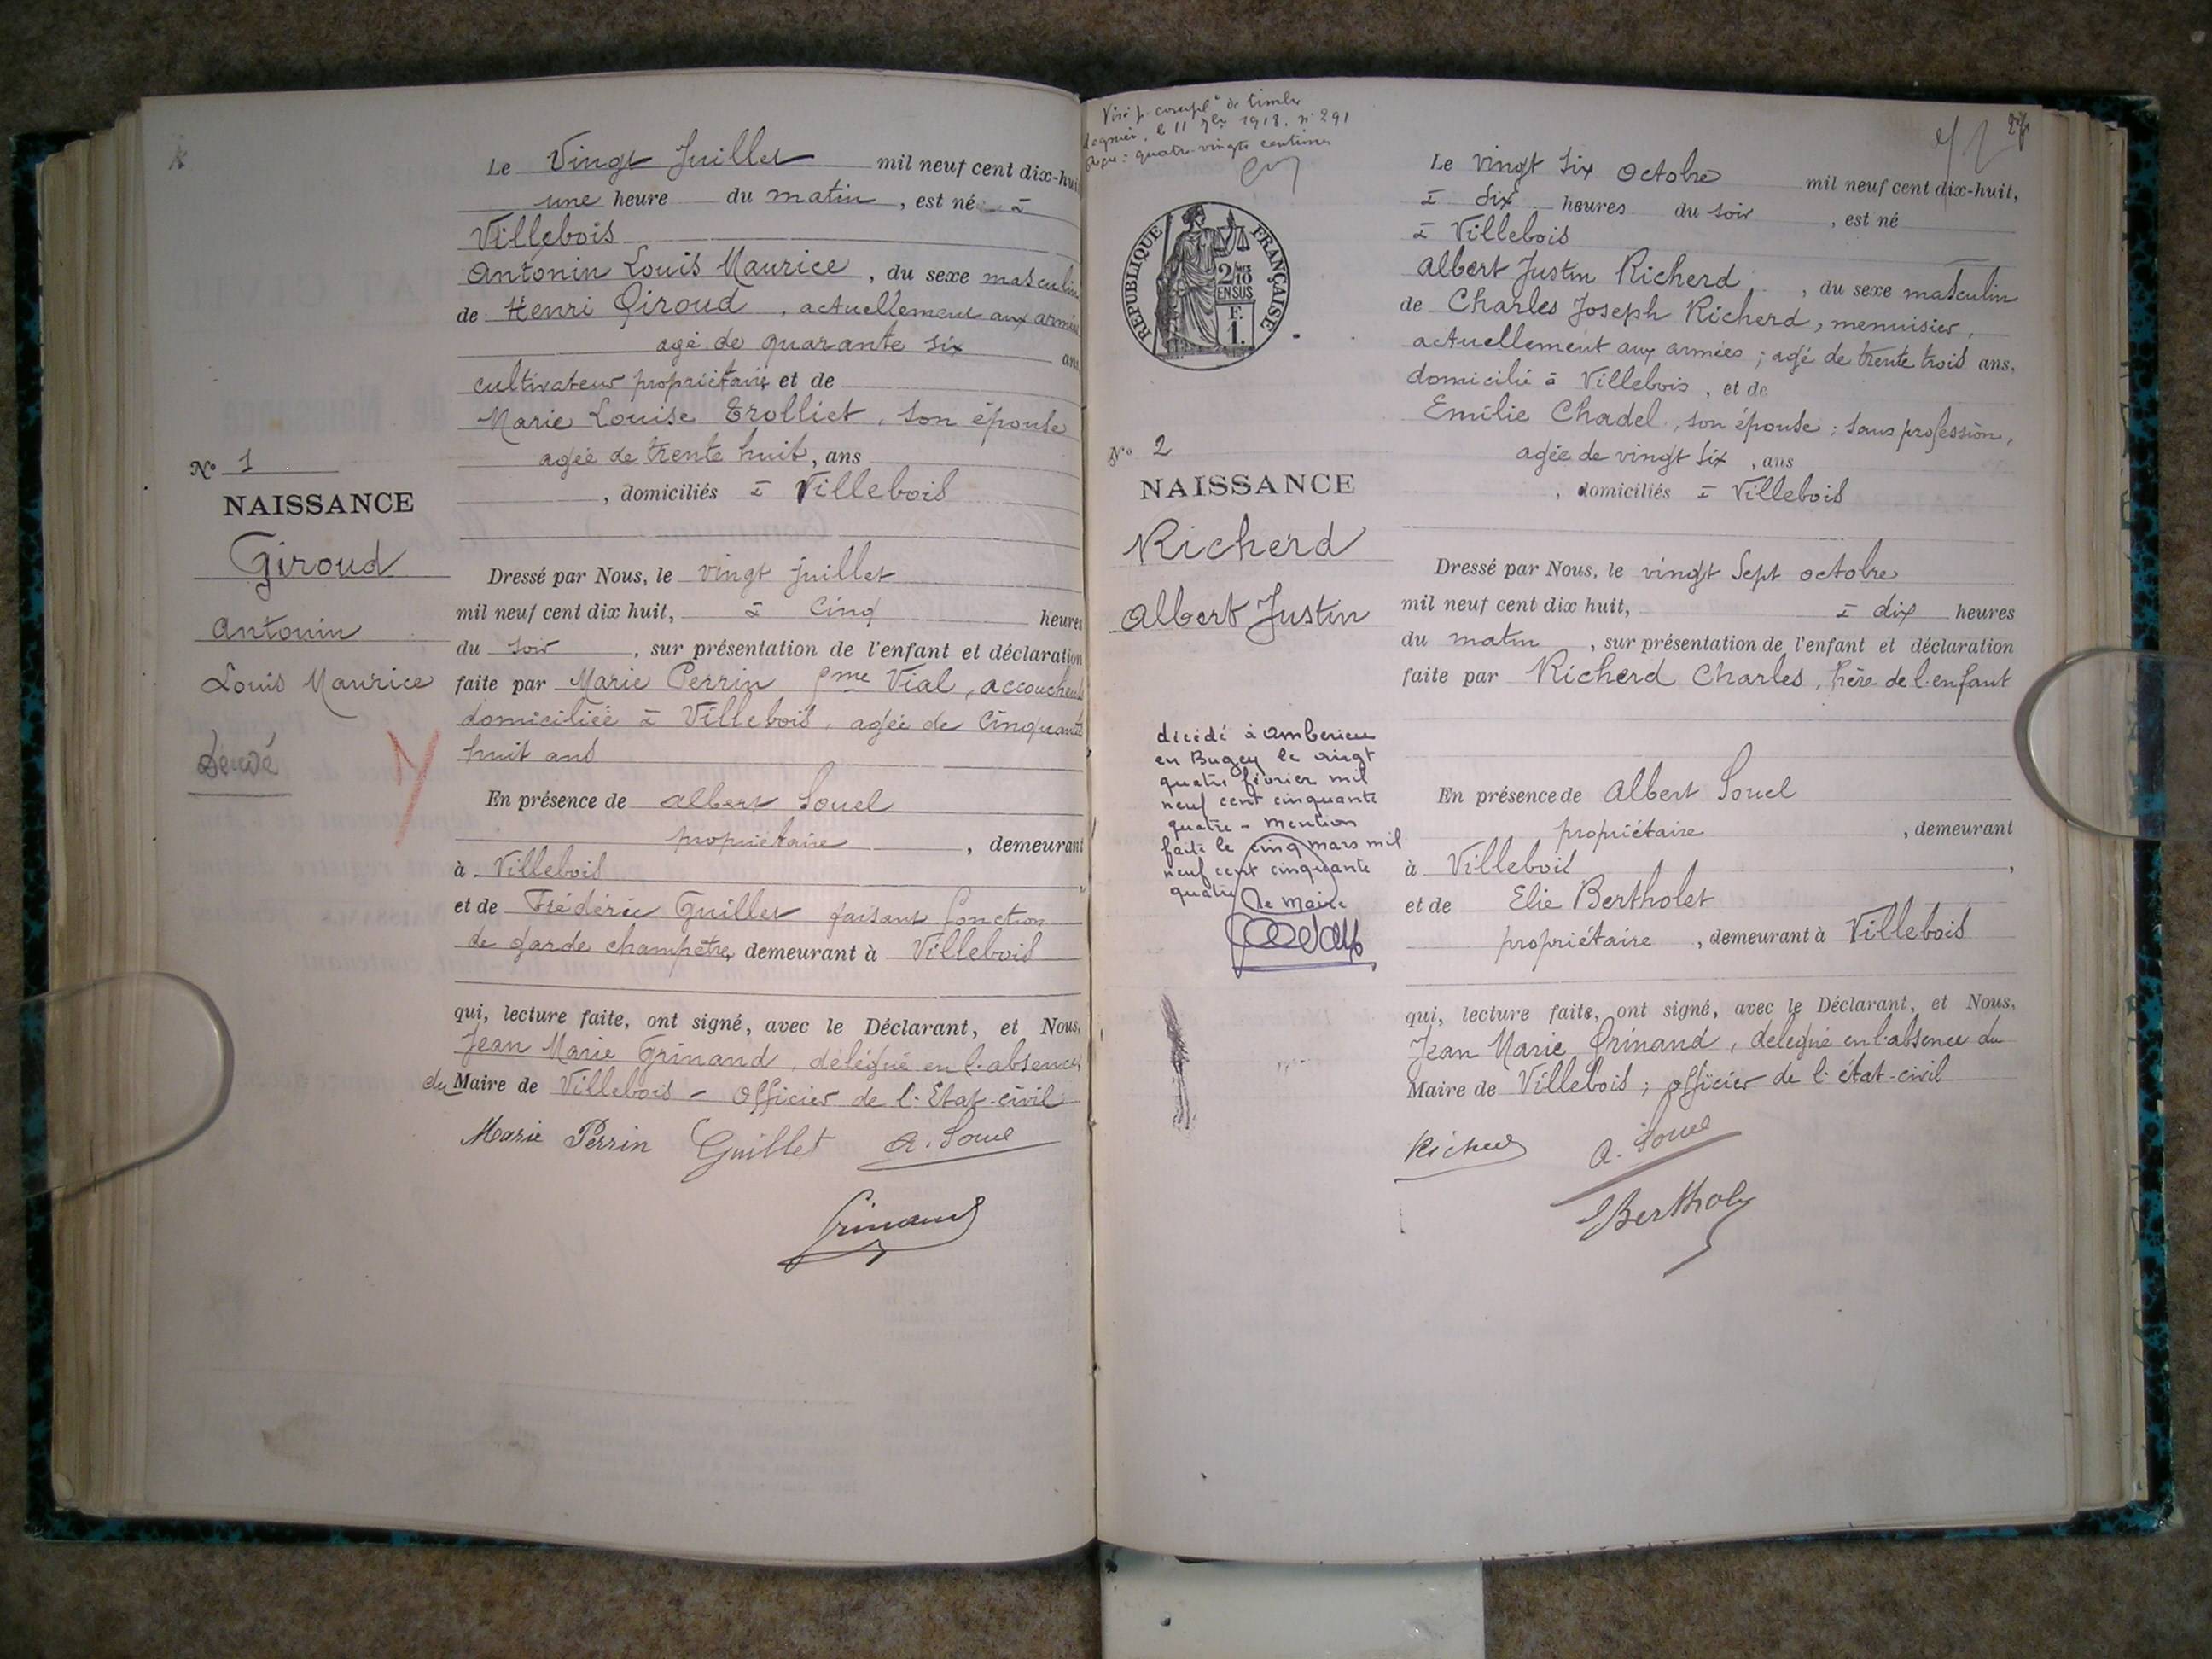 Le Vingt Juillet mil neuf cent dix-hui
une heure du matin, est né à
Villebois
Antonin Louis Maurice, du sexe masculin
de Henri Giroud, actuellement aux armées
agé de quarante six ans
cultivateur propriétaire et de
Marie Louise Trolliet, son épouse
agée de trente huit, ans
, domiciliés à Villebois
N° 1
NAISSANCE
Giroud
Antonin
Louis Maurice
Dressé par Nous, le vingt juillet
mil neuf cent dix huit, à cinq heures
du soir, sur présentation de l'enfant et déclaration
faite par Marie Perrin fme Vial, accoucheuse
domiciliée à Villebois, agée de cinquante
huit ans
En présence de Albert Souel
propriétaire, demeurant
à Villebois,
et de Frédéric Guillet faisant fonction
de garde champêtre, demeurant à Villebois
qui, lecture faite, ont signé, avec le Déclarant, et Nous,
Jean Marie Grinand, délégué en l'absence
du Maire de Villebois - Officier de l'Etat-civil
Marie Perrin Guillet A. Souel
Grinand
Visé p. compl de timbre
le 11 7bre 1918. n° 291
quatre-vingts centimes
REPUBLIQUE FRANÇAISE
2/10
EN SUS
F.
1.
Le vingt six octobre mil neuf cent dix-huit,
à six heures du soir, est né
à Villebois
Albert Justin Richerd, du sexe masculin
de Charles Joseph Richerd, menuisier,
actuellement aux armées; agé de trente trois ans,
domicilié à Villebois, et de
Emilie Chadel, son épouse; sans profession,
agée de vingt six, ans
, domiciliés à Villebois
N° 2
NAISSANCE
Richerd
Albert Justin
Dressé par Nous, le vingt sept octobre
mil neuf cent dix huit, à dix heures
du matin, sur présentation de l'enfant et déclaration
faite par Richerd Charles, Père de l'enfant
décédé à Amberieu
en Bugey le vingt
quatre février mil
neuf cent cinquante
quatre - mention
faite le cinq mars mil
neuf cent cinquante
quatre Le Maire
En présence de Albert Souel
propriétaire, demeurant
à Villebois,
et de Elie Bertholet
propriétaire, demeurant à Villebois
qui, lecture faite, ont signé, avec le Déclarant, et Nous,
Jean Marie Grinand, délégué en l'absence du
Maire de Villebois; officier de l'état-civil
Richerd A. Souel
EBertholet